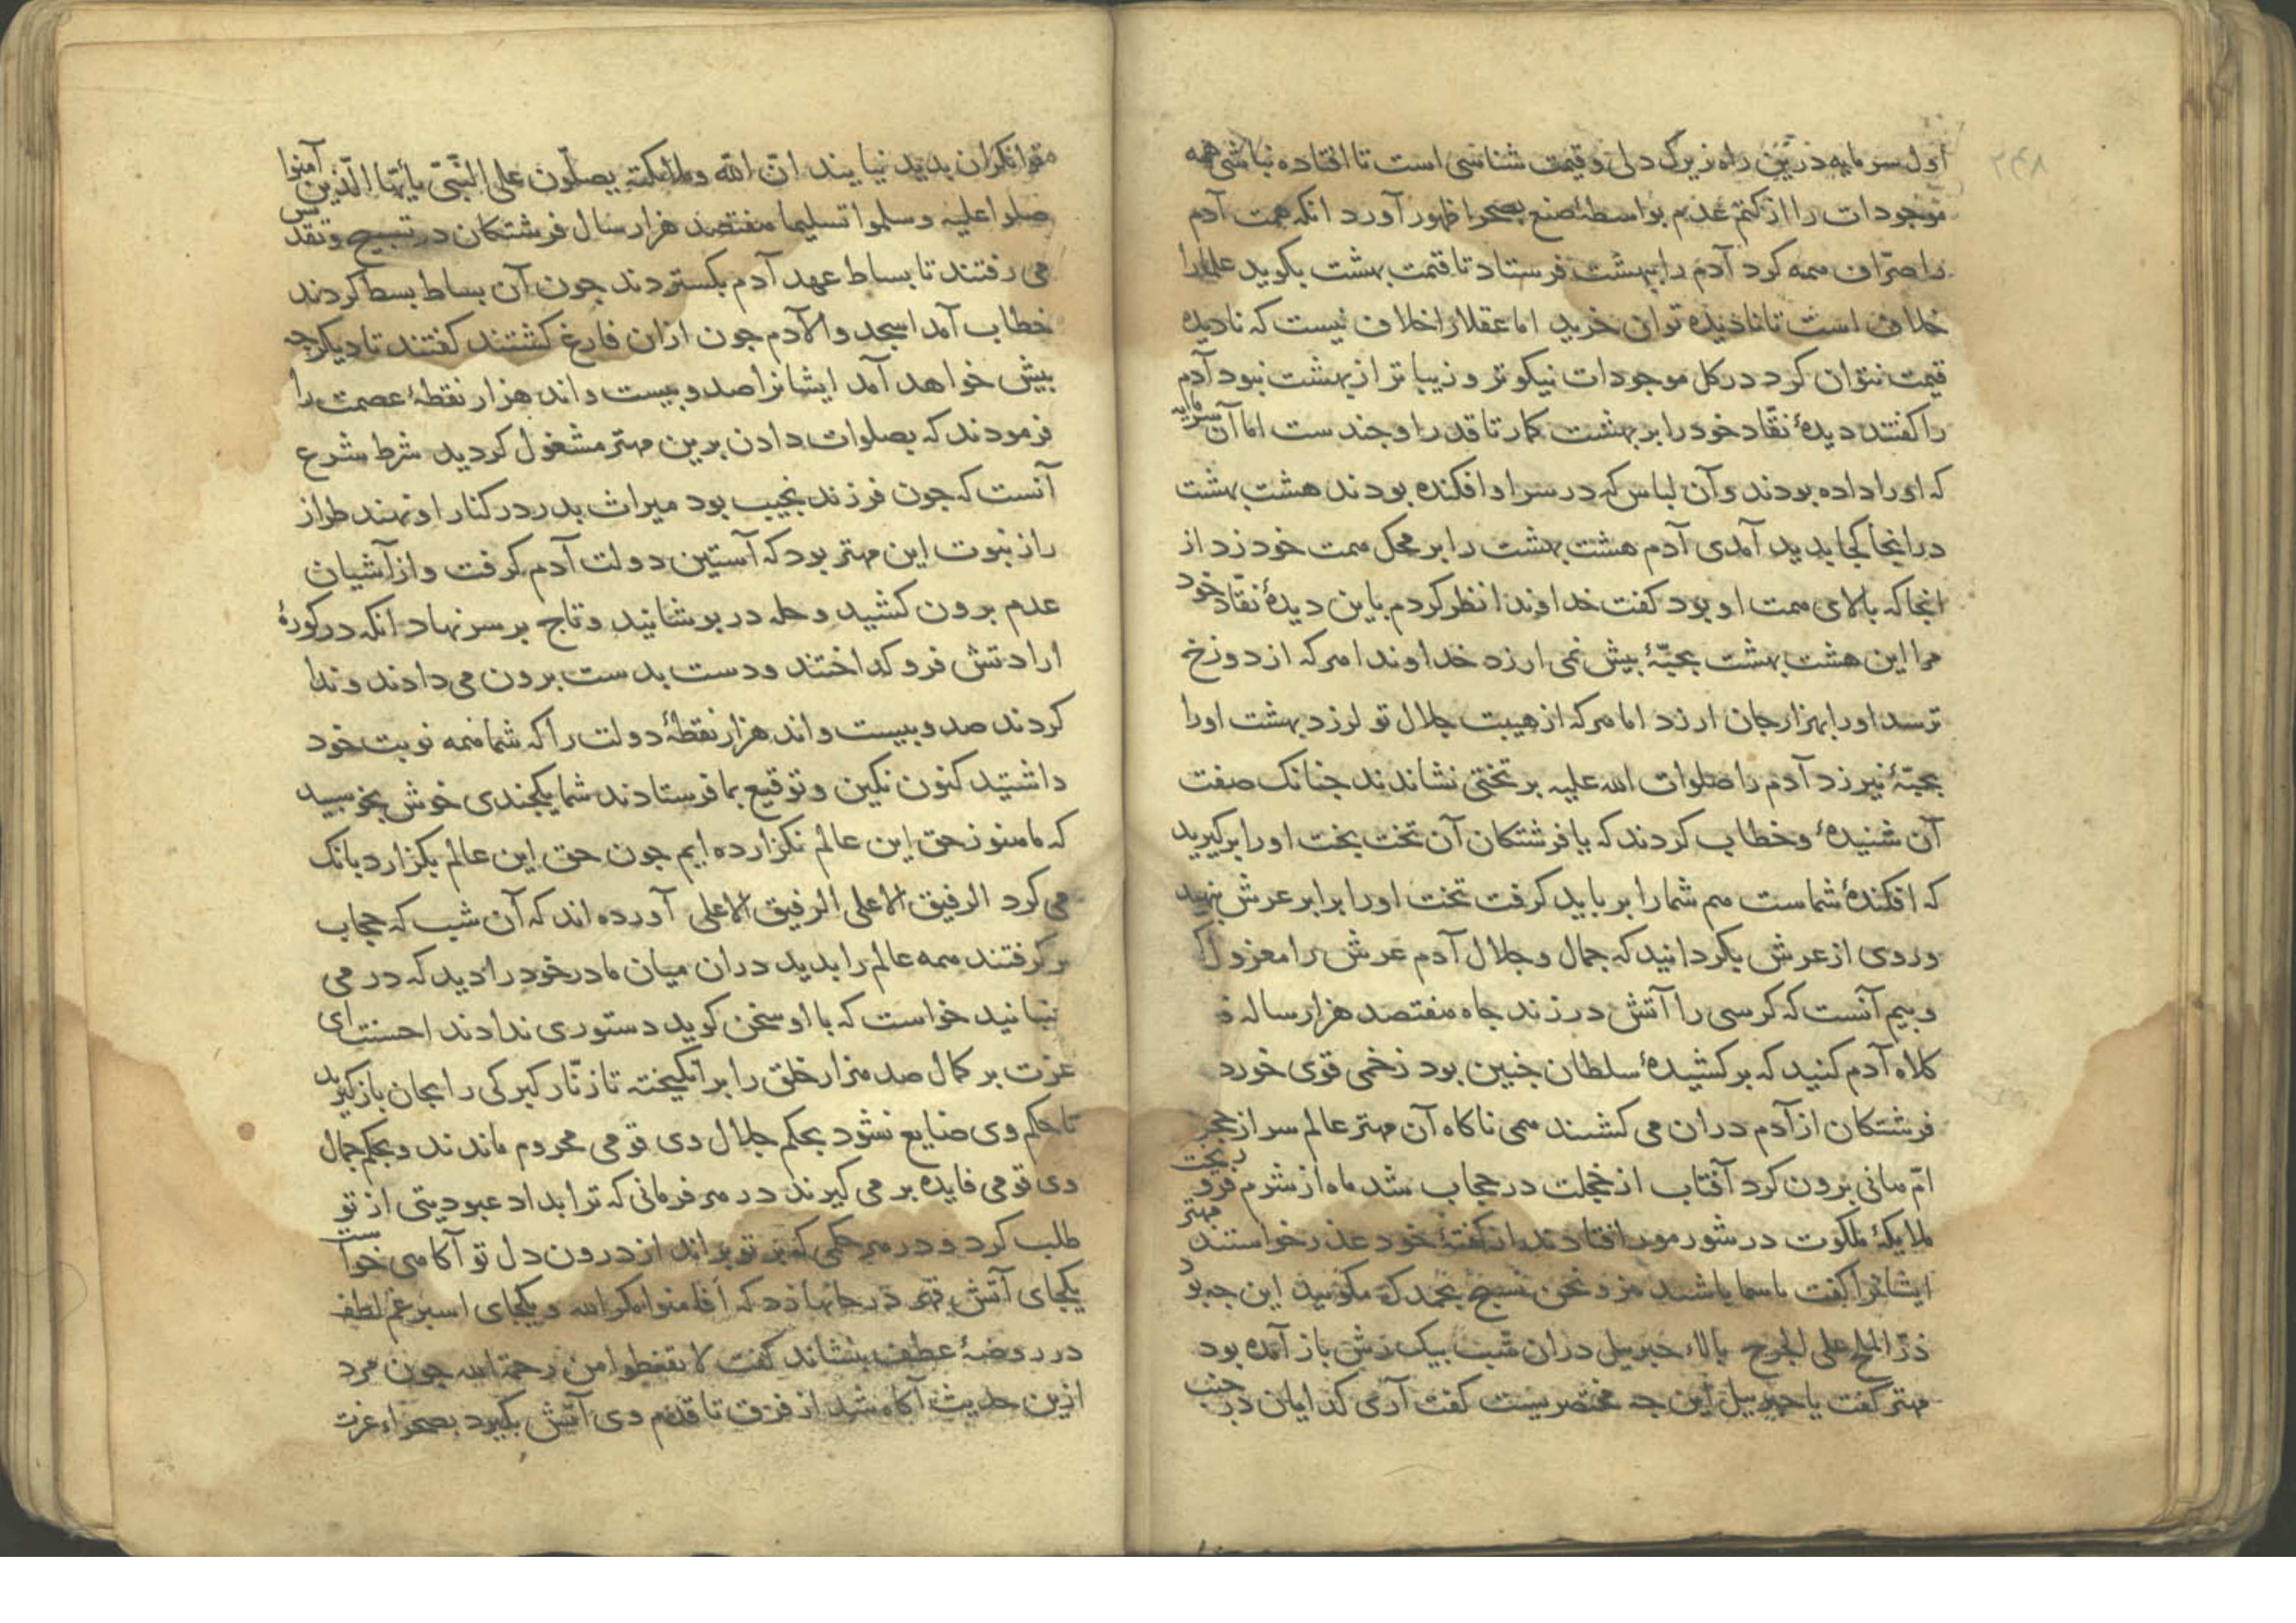 ۲۴۸
اول سرمایه درین راه زیرک دلی و قیمت شناسی است تا افتاده نباشی همه
موجودات را از کتم عدم بواسطهٔ صنع بصحرا ظهور آورد انکه همت آدم
را صرّاف همه کرد آدم را ببهشت فرستاد تا قیمت بهشت بکوید علما را
خلاف است تا نادیده توان خرید اما عقلا را خلاف نیست که نادیده
قیمت نتوان کرد در کل موجودات نیکوتر و زیباتر از بهشت نبود آدم
را کفتند دیدهٔ نقّاد خود را بر بهشت کمار تا قدر او جندست اما آن سرمایه
که او را داده بودند و آن لباس که در سر او افکنده بودند هشت بهشت
در انجا کجا بدید آمدی آدم هشت بهشت را بر محک همت خود زد از
انجا که بالای همت او بود کفت خداوندا نظر کردم باین دیدهٔ نقّاد خود
مرا این هشت بهشت بحبّهٔ بیش نمی ارزد خداوندا هرکه از دوزخ
ترسد او را بهزار جان ارزد اما هرکه از هیبت جلال تو لرزد بهشت او را
بحبّهٔ نیرزد آدم را صلوات الله علیه بر تختی نشاندند جنانک صفت
آن شنیدهٔ و خطاب کردند که یا فرشتکان آن تخت بخت او را برکیرید
که افکندهٔ شماست هم شما را بر باید کرفت تخت او را برابر عرش بنهید
و روی از عرش بکردانید که جمال و جلال آدم عرش را معزول
و بیم آنست که کرسی را آتش در زند جاه هفتصد هزار ساله
کلاه آدم کنید که برکشیدهٔ سلطان جنین بود زخمی قوی خورد
فرشتکان از آدم در ان می کشند همی ناکاه آن مهتر عالم سر از حجر
امّ هانی برون کرد آفتاب از خجلت در حجاب شد ماه از شرم فرو ریخت
ملایکهٔ ملکوت در شور مور افتادند از کفتهٔ خود عذر خواستند مهتر
ایشانرا کفت با سما باشند مز و نحن نسبح بحمدک مکویید این جه بود
ذرّ الملح علی الجرح بالاء جبرییل در ان شب بیک زش باز آمده بود
مهتر کفت یا جبرییل این جه مختصریست کفت آری کدایان در جنب
متوانکران بدید نیایند انّ الله وملائکته یصلّون علی النّبیّ یا أیها الّذین آمنوا
صلوا علیه وسلموا تسلیما هفتصد هزار سال فرشتکان در تسبیح و تقدیس
می رفتند تا بساط عهد آدم بکستردند جون آن بساط بسط کردند
خطاب آمد اسجدوا لآدم جون ازان فارغ کشتند کفتند تا دیکر جه
بیش خواهد آمد ایشانرا صد و بیست و اند هزار نقطهٔ عصمت را
فرمودند که بصلوات دادن برین مهتر مشغول کردید شرط شرع
آنست که جون فرزند نجیب بود میراث بدر در کنار او نهند طراز
راز نبوت این مهتر بود که آستین دولت آدم کرفت و از آشیان
عدم برون کشید و حله در بوشانید و تاج بر سر نهاد انکه در کورهٔ
ارادتش فرو کداختند و دست بدست برون می دادند و ندا
کردند صد و بیست و اند هزار نقطهٔ دولت را که شما همه نوبت خود
داشتید کنون نکین و توقیع بما فرستادند شما یکجندی خوش بخوسبید
که ما هنوز حق این عالم نکزارده ایم جون حق این عالم بکزارد بانک
می کرد الرفیق الاعلی الرفیق الاعلی آورده اند که آن شب که حجاب
بر کرفتند همه عالم را بدید در ان میان مادر خود را دید که در می
نبانید خواست که با او سخن کوید دستوری ندادند احسنت ای
عزت بر کمال صد هزار خلق را بر انکیخته تا زنّار کبرکی را بجان باز کیرید
تا حکم وی ضایع نشود بحکم جلال وی قومی محروم ماندند و بحکم جمال
وی قومی فایده بر می کیرند در هر فرمانی که ترا بداد عبودیتی از تو
طلب کرد و در هر حکمی که بر تو براند از درون دل تو آکاهی خواست
یکجای آتش قهر در جانها زد که أفأمنوا مکر الله و یکجای اسبرغم لطف
در روضهٔ عطف بنشاند کفت لا تقنطوا من رحمة الله جون مرد
ازین حدیث آکاه شد از فرق تا قدم وی آتش بکیرد بصحراء عزت